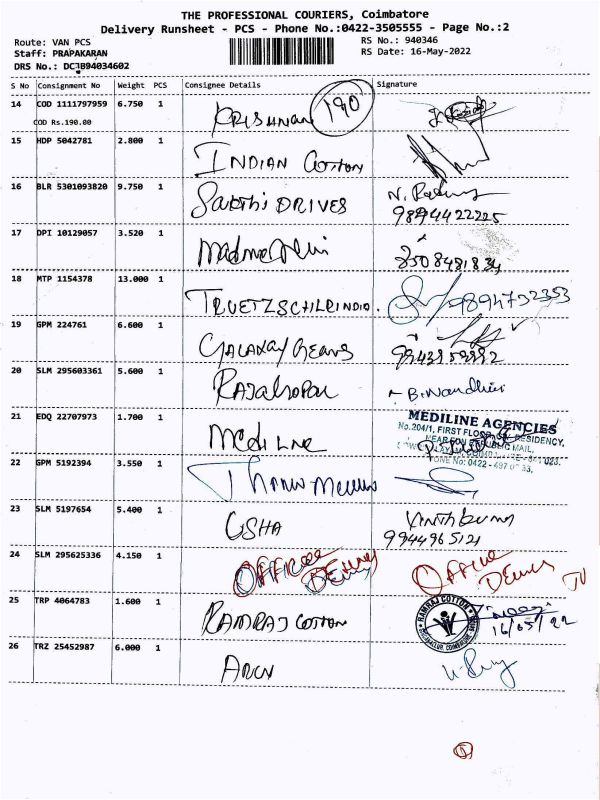 THE PROFESSIONAL COURIERS, Coimbatore
Delivery Runsheet - PCS - Phone No.:0422-3505555 - Page No.:2
Route: VAN PCS
RS No.: 940346
Staff: PRAPAKARAN
RS Date: 16-May-2022
DRS No.: DCJB94034602
S No Consignment No Weight PCS Consignee Details Signature
14 COD 1111797959 6.750 1 KRISHNAN 190
COD Rs.190.00
15 HDP 5042781 2.800 1 INDIAN COTTON
16 BLR 5301093820 9.750 1 Sakthi DRIVES
9894422225
17 DPI 10129057 3.520 1
8508481834
18 MTP 1154378 13.000 1 9894752353
19 GPM 224761 6.600 1 GALAXAY GEARS
20 SLM 295603361 5.600 1 RAJALSOPAL B. Nandhini
21 EDQ 22707973 1.700 1 MEDILINE
MEDILINE AGENCIES
No.204/1, FIRST FLOOR, RESIDENCY,
22 GPM 5192394 3.550 1
23 SLM 5197654 5.400 1 USHA
9944965121
24 SLM 295625336 4.150 1 OFFICE OFFICE
25 TRP 4064783 1.600 1 RAMRAJ COTTON
RAMRAJ COTTON
16/05/22
26 TRZ 25452987 6.000 1 ARUN